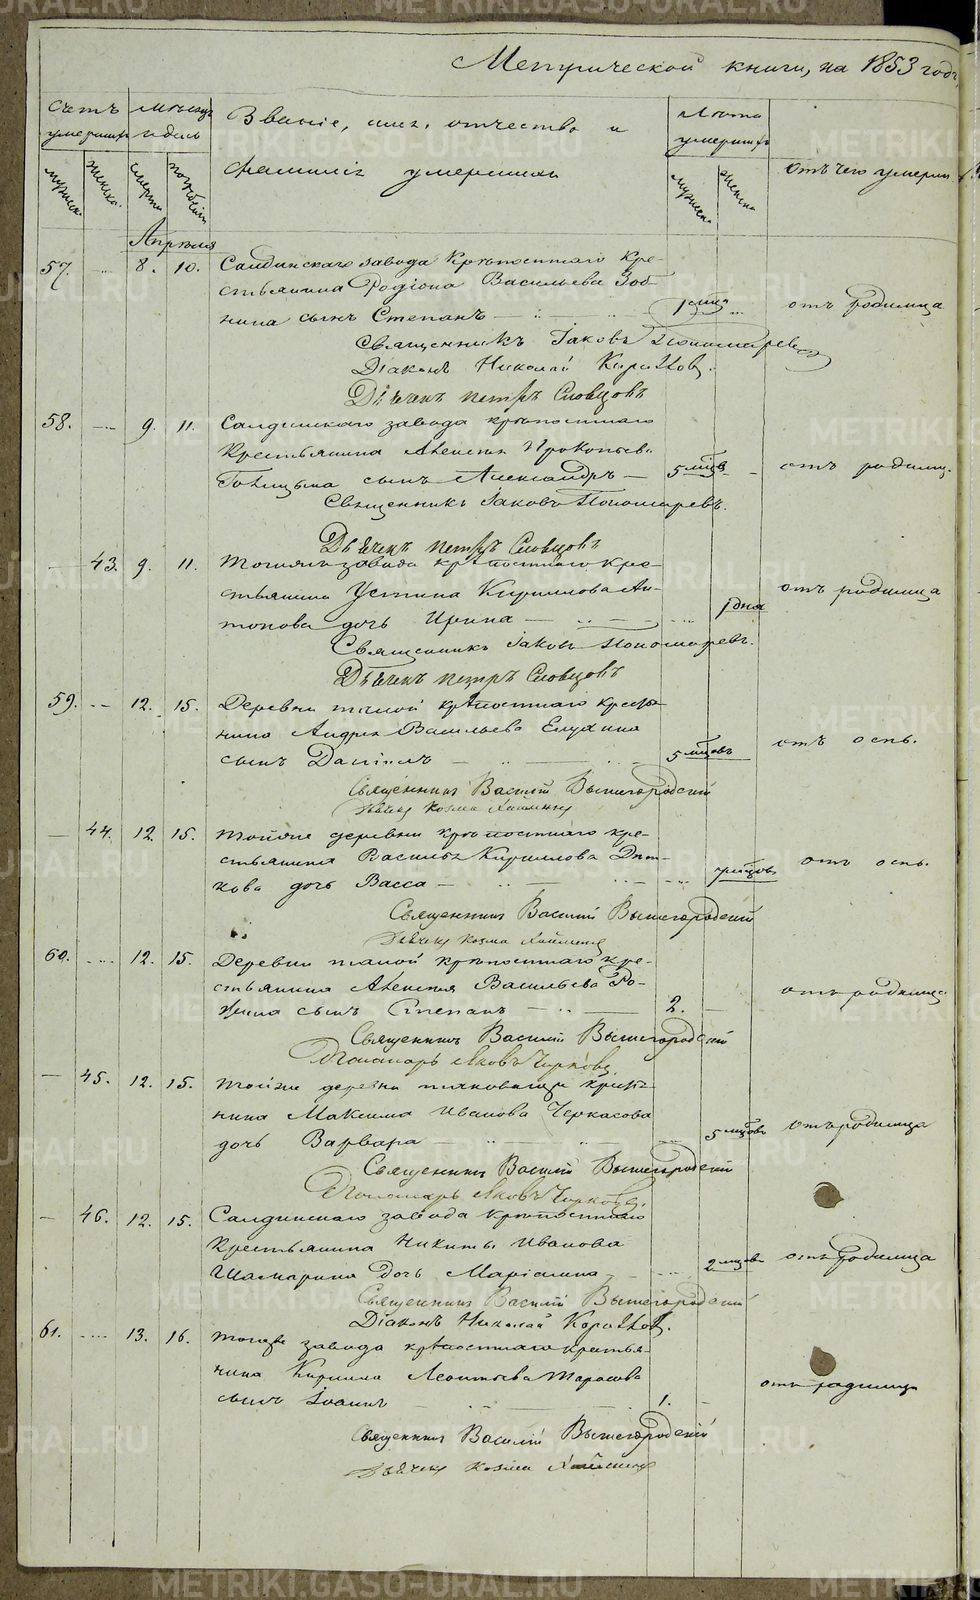 METRIKI.GASO-URAL.RU
Метрической книги, на 1853 годъ
Счетъ умершихъ
Мѣсяцъ и день
Званіе, имя, отчество и
фамилія умершихъ
Лѣта умершихъ
отъ чего умерли
мужеска
женска
смерти
погребенія
мужеска
женска
Апрѣля
57. 8. 10. Салдинскаго завода Крѣпостнаго Кре-
стьянина Родіона Васильева Зоб-
нина сынъ Степанъ 1 мца отъ родимца
Священникъ Іаковъ Пономаревъ
Діаконъ Николай
Дьячекъ Петръ Словцовъ
58. 9. 11. Салдинскаго завода крѣпостнаго
Крестьянина Алексѣя Прокопьева
сынъ Александръ 5 мцовъ отъ родимц.
Священникъ Іаковъ Пономаревъ.
Дьячекъ Петръ Словцовъ
43. 9. 11. Тогоже завода крѣпостнаго Кре-
стьянина Устина Кириллова Ан-
тонова дочь Ирина 1 дня отъ родимца
Священникъ Іаковъ Пономаревъ.
Дьячекъ Петръ Словцовъ
59. 12. 15. Деревни крѣпостнаго крестья-
нина Андрея Васильева Елухина
сынъ Даніилъ 5 мцовъ отъ оспы.
Священникъ Василій Вышегородскій
Дьячекъ Козма
44. 12. 15. Тойже деревни крѣпостнаго кре-
стьянина Василья Кириллова
кова дочь Васса мцовъ отъ оспы.
Священникъ Василій Вышегородскій
Дьячекъ Козма
60. 12. 15. Деревни крѣпостнаго кре-
стьянина Алексѣя Васильева Ро-
жина сынъ Степанъ 2. отъ родимца
Священникъ Василій Вышегородскій
Пономарь Яковъ
45. 12. 15. Тойже деревни крестья-
нина Максима Иванова Черкасова
дочь Варвара 5 мцовъ отъ родимца
Священникъ Василій Вышегородскій
Пономарь Яковъ
46. 12. 15. Салдинскаго завода крѣпостнаго
Крестьянина Никиты Иванова
Шамарина дочь Маріамна 2 мцовъ отъ родимца
Священникъ Василій Вышегородскій
Діаконъ Николай
61. 13. 16. Тогоже завода крѣпостнаго крестья-
нина Кирилла Леонтьева Тарасова
сынъ Іоаннъ 1. отъ родимца
Священникъ Василій Вышегородскій
Дьячекъ Козма